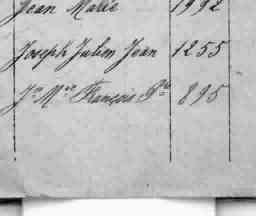 Jean Marie 1992
Joseph Julien Jean 1255
Jn Mie François Bte 895